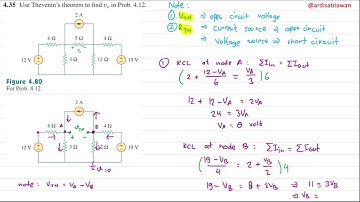 4.35 Use Thevenin's theorem to find vo in Prob. 4.12.
2 A
6 Ω
5 Ω
4 Ω
+ vo −
12 V
3 Ω
2 Ω
19 V
Figure 4.80
For Prob. 4.12.
2 A
6 Ω
A
B
4 Ω
12 V
3 Ω
2 Ω
19 V
V=0
note: VTH = VA − VB
Note:
@ardisatriawan
① VTH ⇒ open circuit voltage
② RTH ⇒ current source → open circuit
⇒ voltage source ⇒ short circuit
① KCL at node A : ΣIin = ΣIout
(2 + 12−VA/6 = VA/3) 6
12 + 12 − VA = 2VA
24 = 3VA
VA = 8 volt
KCL at node B : ΣIin = ΣIout
(19−VB/4 = 2 + VB/2) 4
19 − VB = 8 + 2VB ⇒ 11 = 3VB
⇒ VB =